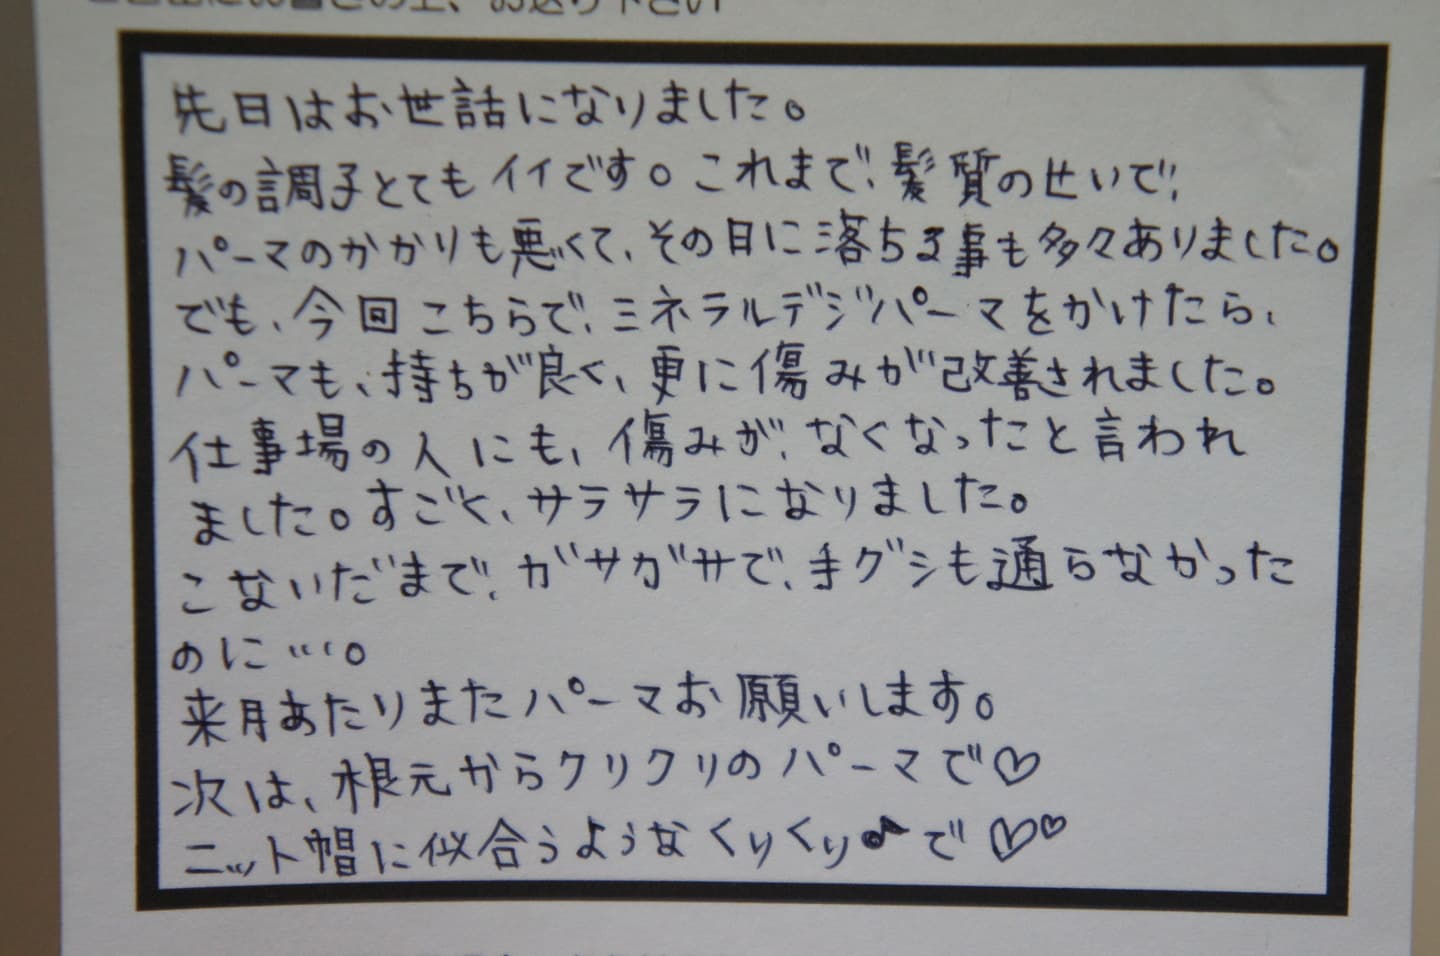 お送り下さい
先日はお世話になりました。
髪の調子とてもイイです。これまで、髪質のせいで、
パーマのかかりも悪くて、その日に落ちる事も多々ありました。
でも、今回こちらで、ミネラルデジパーマをかけたら、
パーマも、持ちが良く、更に傷みが改善されました。
仕事場の人にも、傷みが、なくなったと言われ
ました。すごく、サラサラになりました。
こないだまで、ガサガサで、手グシも通らなかった
のに…。
来月あたりまたパーマお願いします。
次は、根元からクリクリのパーマで♡
ニット帽に似合うようなくりくり♪で♡♡